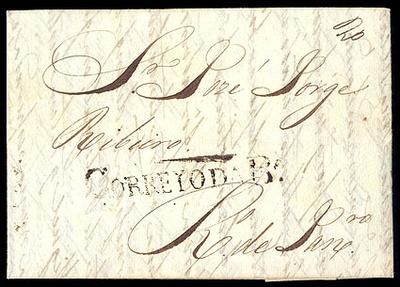 20
Sr. José Jorge
Ribeiro
CORREYO DA Ba.
Ro. de Janro.